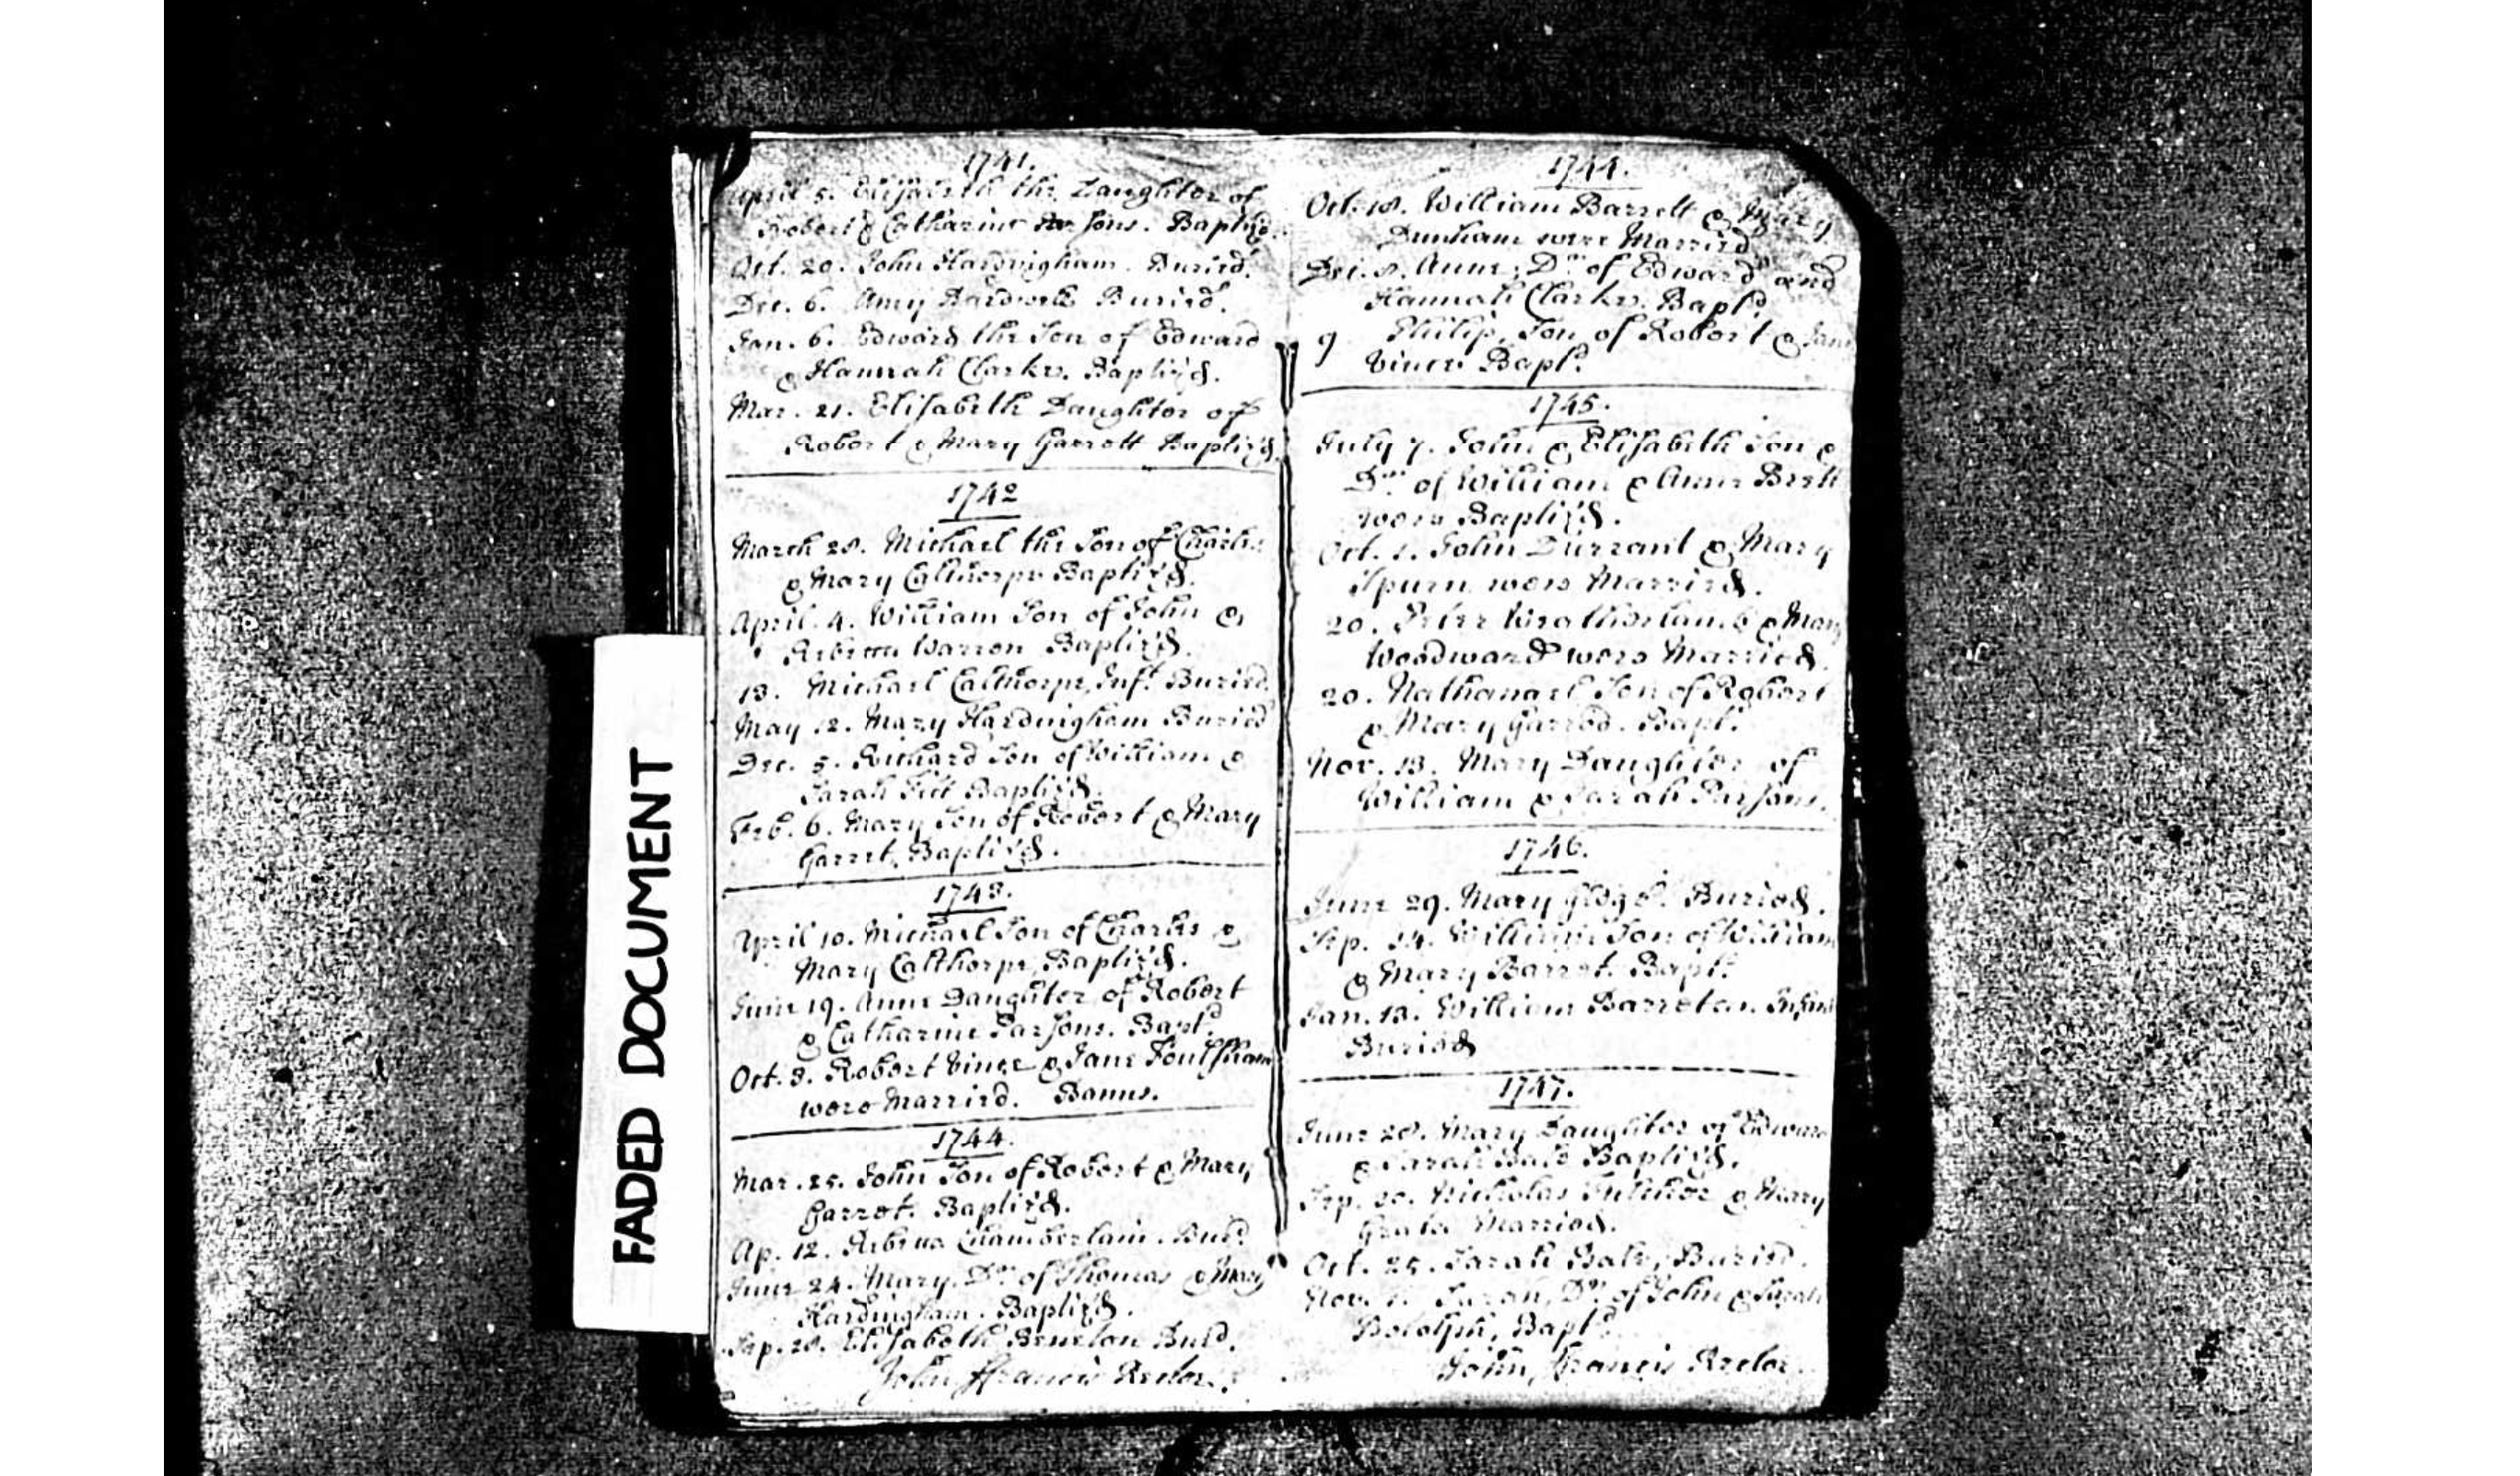 FADED DOCUMENT
1741.
April 5. Elisabeth the Daughter of
Robert & Catharine Parsons. Baptiz'd.
Oct. 20. John Hardingham. Buried.
Dec. 6. Amy Bardwell Buried.
Jan. 6. Edward the Son of Edward
& Hannah Clarke. Baptiz'd.
Mar. 21. Elisabeth Daughter of
Robert & Mary Garrett Baptiz'd.
1742
March 28. Michael the Son of Charles
& Mary Calthorpe Baptiz'd.
April. 4. William Son of John &
Rebecca Warren Baptiz'd.
13. Michael Calthorpe, Inft. Buried.
May 12. Mary Hardingham Buried
Dec. 5. Richard Son of William &
Sarah Baptiz'd.
Feb. 6. Mary Son of Robert & Mary
Garret, Baptiz'd.
1743.
April 10. Michael Son of Charles &
Mary Calthorpe, Baptiz'd.
June 19. Anne Daughter of Robert
& Catharine Parsons. Bapt.d
Oct. 3. Robert Vince & Jane Foulsham
were Married. Banns.
1744.
Mar. 25. John Son of Robert & Mary
Garret. Baptiz'd.
Ap. 12. Rebecca Chamberlain. Bur.d
June 24. Mary, D.r of Thomas & Mary
Hardingham. Baptiz'd.
Sep. 28. Elisabeth Beneton Bur'd.
John Ffrancis Rector.
1744.
Oct. 18. William Barrett & Mary
Dunham were Married
Dec. 2. Anne, D.r of Edward and
Hannah Clarke. Bapt.d
9 Philip, Son of Robert & Jane
Vince Bapt.d
1745.
July 7. John & Elisabeth Son &
D.r of William & Anne Brett
were Baptiz'd.
Oct. 1. John Durrant & Mary
Spurn were Married.
20. Peter Weatherlamb & Mary
Woodward were Married.
20. Nathanael Son of Robert
& Mary Garrod. Bapt.d
Nov. 13. Mary Daughter of
William & Sarah Parsons.
1746.
June 29. Mary Buried.
Sep. 14. William Son of William
& Mary Barret. Bapt.d
Jan. 13. William Barret an Infant
Buried
1747.
June 28. Mary Daughter of Edward
& Sarah Bale Baptiz'd.
Sep. 20. Nicholas & Mary
Married.
Oct. 25. Sarah Bale, Buried.
Nov. 1. Sarah, D.r of John & Sarah
Bololph, Bapt.d
John, Francis Rector.